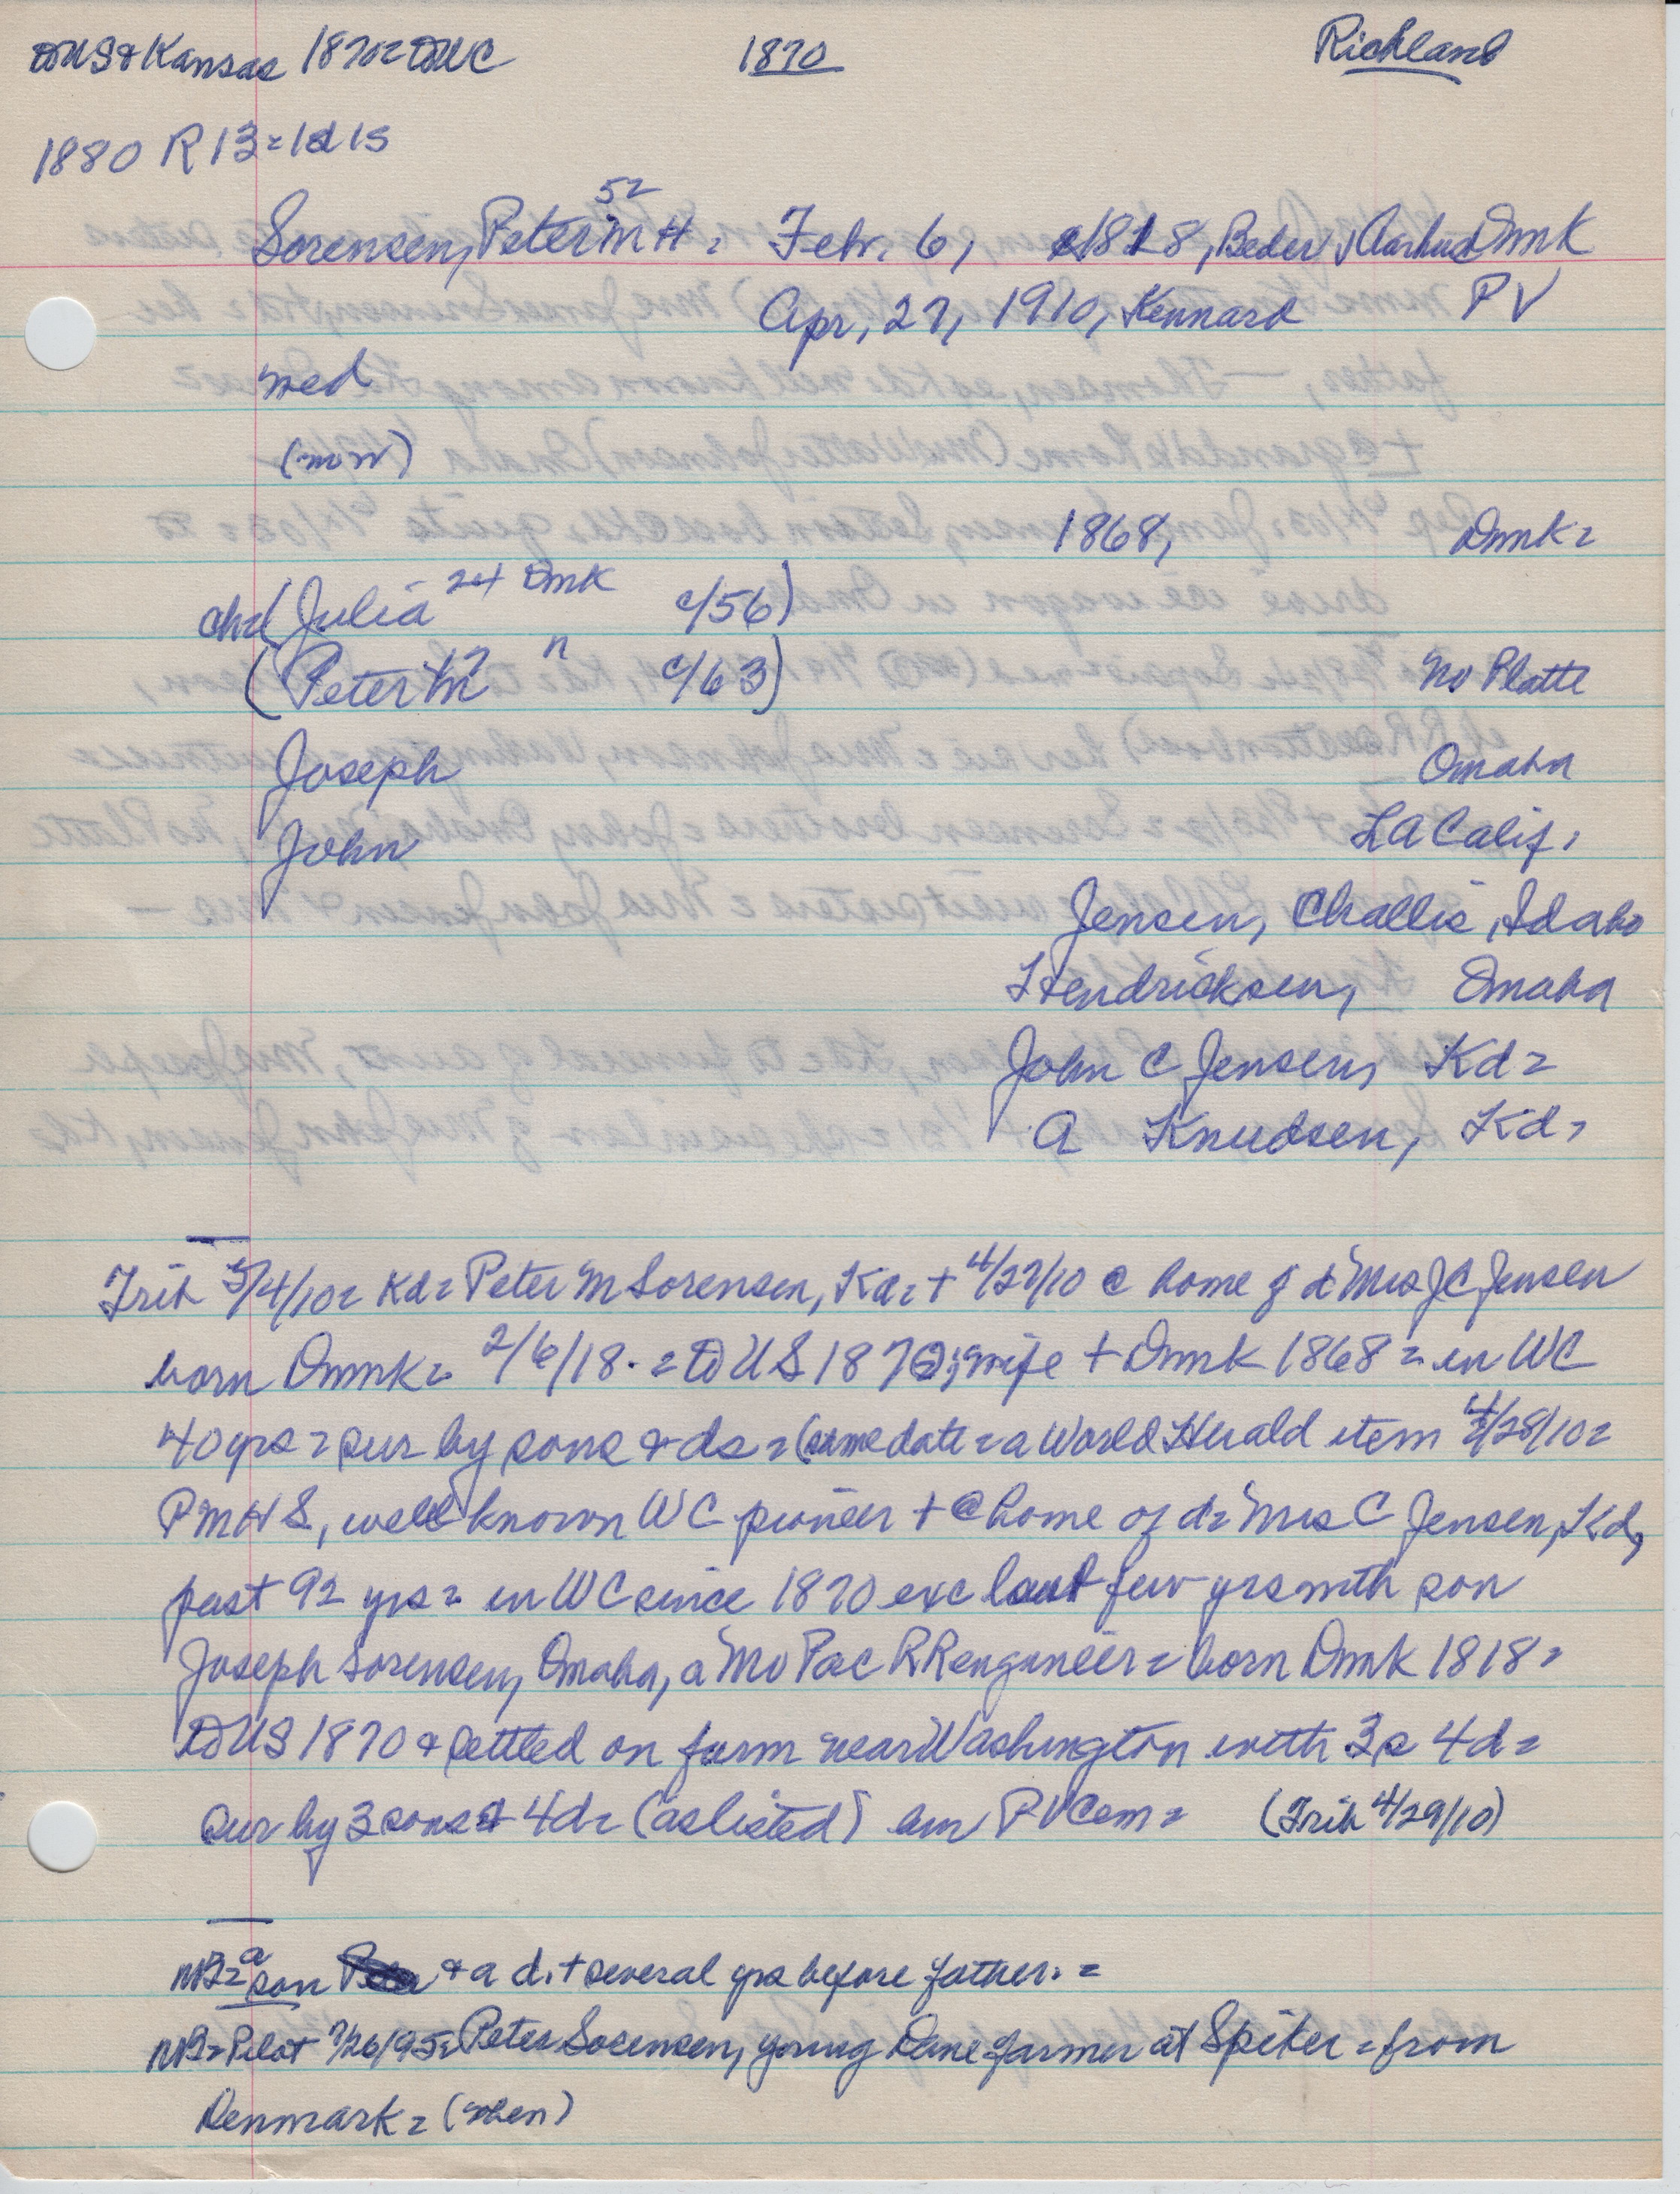 to US & Kansas 1870 = to WC 1870 Richland
1880 R 13 = 1d 1s
Sorensen, Peter M H = 52 Febr. 6, 1818, Beder, Aarhus Dmk
Apr, 27, 1910, Kennard PV
med
(now)
1868, Dmk =
chd (Julia 24 Dmk c/56)
(Peter M 17 " c/63) No Platte
Joseph Omaha
John LA Calif,
Jensen, Challis, Idaho
Hendricksen, Omaha
John C Jensen, Kd =
A Knudsen, Kd,
Trib 5/4/10 = Kd = Peter M Sorensen, Kd = + 4/27/10 @ home of d Mrs JC Jensen
born Dmk = 2/6/18. = to US 1870; wife + Dmk 1868 = in WC
40 yrs = sur by sons & ds = (same date = a World Herald item 4/28/10 =
PMHS, well known WC pioneer + @ home of d = Mrs C Jensen, Kd,
past 92 yrs = in WC since 1870 exc last few yrs with son
Joseph Sorensen, Omaha, a Mo Pac RR engineer = born Dmk 1818 =
to US 1870 & settled on farm near Washington with 3s 4d =
sur by 3 sons & 4d = (as listed) bur PV Cem = (Trib 4/29/10)
NB = a son & a d. + several yrs before father. =
NB = Pilot 7/26/95 = Peter Sorensen, young Dane farmer at Spiker = from
Denmark = (when)